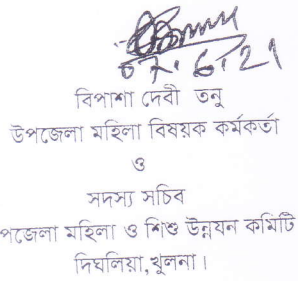 07.6.21
বিপাশা দেবী তনু
উপজেলা মহিলা বিষয়ক কর্মকর্তা
ও
সদস্য সচিব
পজেলা মহিলা ও শিশু উন্নয়ন কমিটি
দিঘলিয়া,খুলনা।